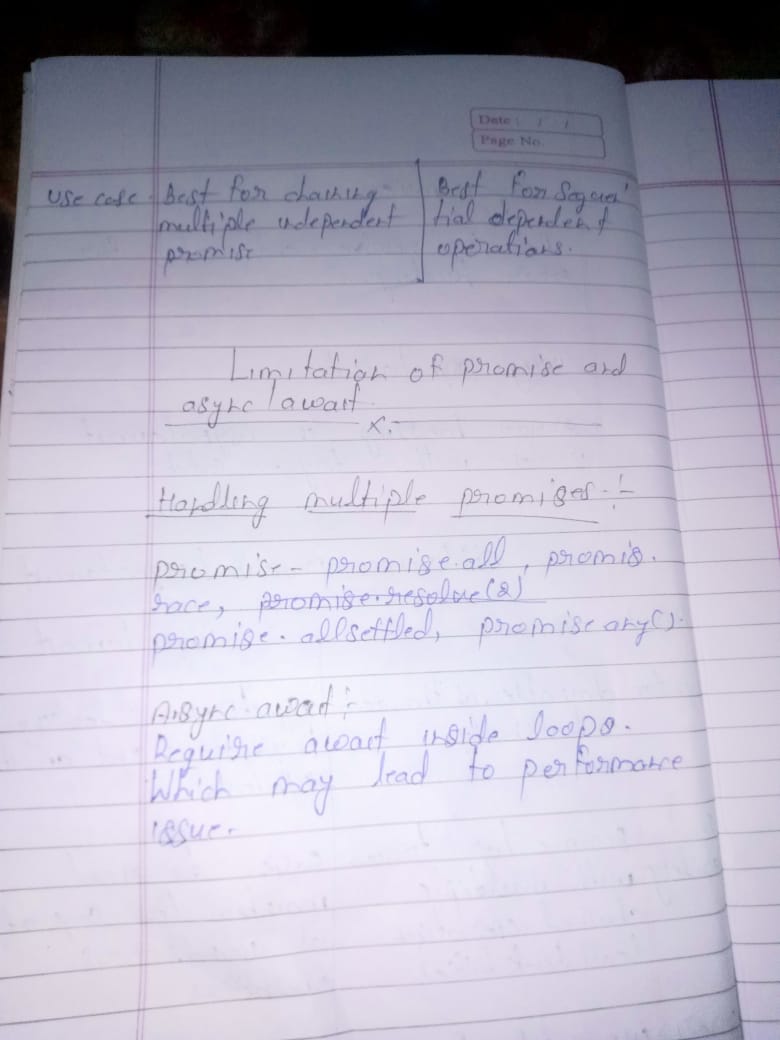 Date : / /
Page No.
Use case Best for chaining Best for Sequen
multiple independent tial dependent
promise operations.
Limitation of promise and
async / await
x.
Handling multiple promises :-
promise - promise.all , promis.
race, promise.resolve(2)
promise. allsettled, promise any().
Async await :
Require await inside loops.
Which may lead to performance
issue.